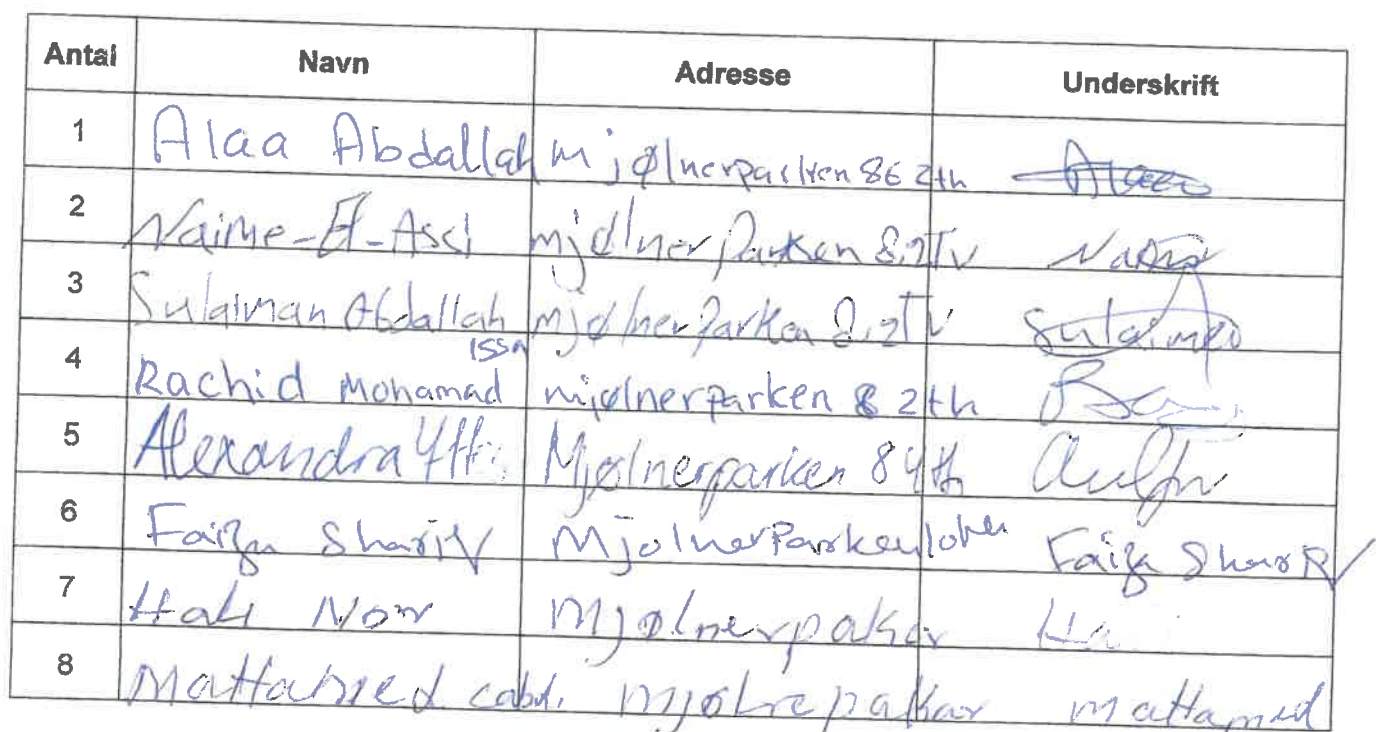 Antal Navn Adresse Underskrift
1 Alaa Abdallah mjølnerparken 86 2th Alaa
2 Naime-El-Assi mjølnerparken 8,2Tv
3 Sulaiman Abdallah mjølnerparken 8,2Tv Sulaiman
4 Rachid Mohamad Issa mjølnerparken 8 2th
5 Alexandra Mjølnerparken 8 4th
6 Faiza Shariff Mjolnerparken Faiza Shariff
7 Nor Mjølnerpakar Ha
8 mjølnepakar mattamed